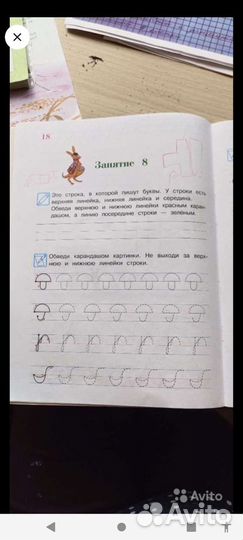 18
Занятие 8
Это строка, в которой пишут буквы. У строки есть
верхняя линейка, нижняя линейка и середина.
Обведи верхнюю и нижнюю линейки красным каран-
дашом, а линию посередине строки — зелёным.
Обведи карандашом картинки. Не выходи за верх-
нюю и нижнюю линейки строки.
Avito
Avito